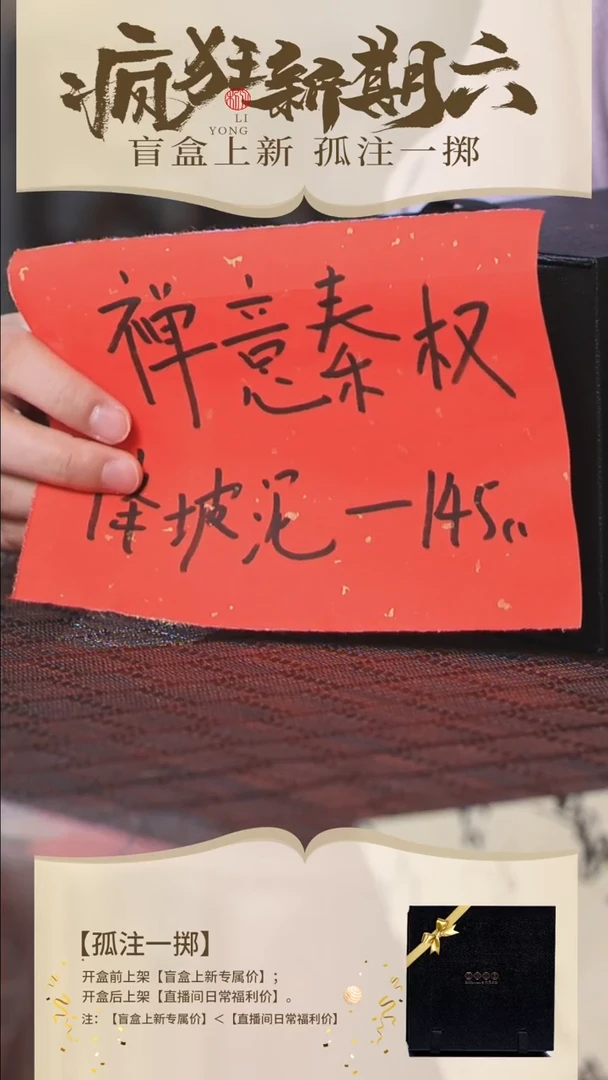 疯狂新期六
LI
YONG
盲盒上新 孤注一掷
禅意秦权
降坡泥一145cc
【孤注一掷】
开盒前上架【盲盒上新专属价】；
开盒后上架【直播间日常福利价】。
注：【盲盒上新专属价】＜【直播间日常福利价】